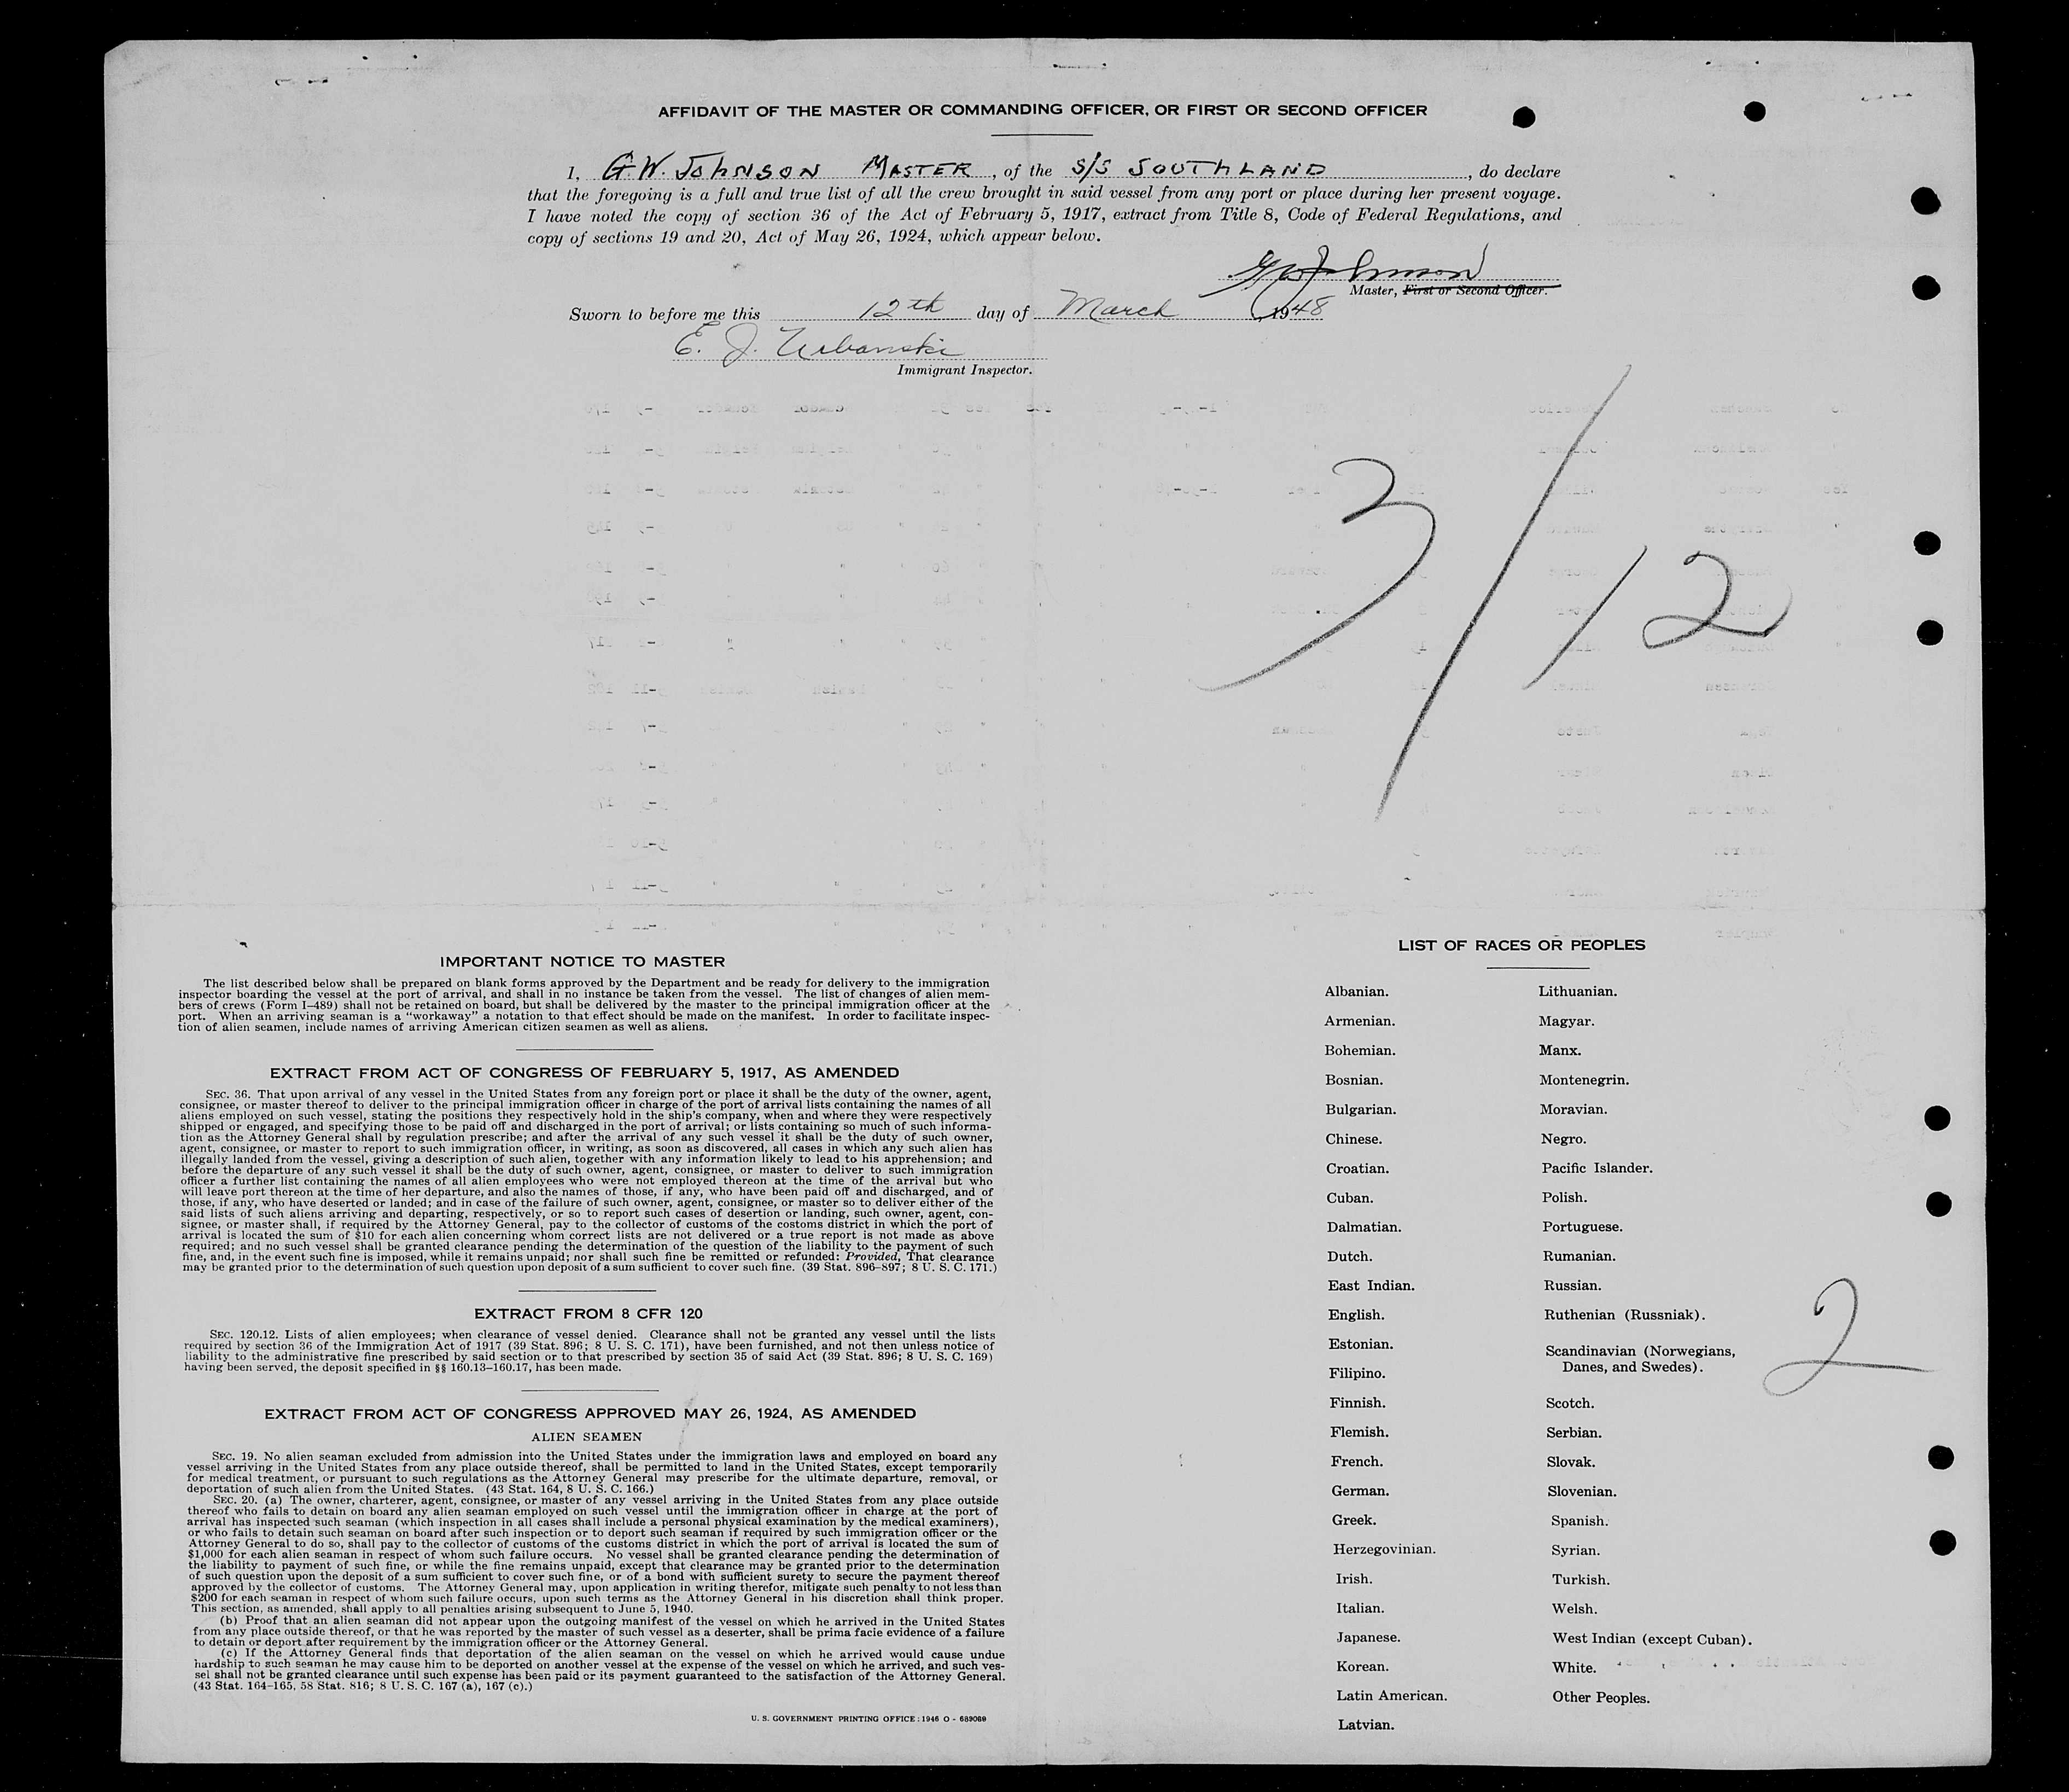 AFFIDAVIT OF THE MASTER OR COMMANDING OFFICER, OR FIRST OR SECOND OFFICER
I, G.W. JOHNSON MASTER, of the S/S SOUTHLAND, do declare
that the foregoing is a full and true list of all the crew brought in said vessel from any port or place during her present voyage.
I have noted the copy of section 36 of the Act of February 5, 1917, extract from Title 8, Code of Federal Regulations, and
copy of sections 19 and 20, Act of May 26, 1924, which appear below.
GW Johnson
Master, First or Second Officer.
Sworn to before me this 12th day of March, 1948
E. J. Urbanski
Immigrant Inspector.
3/12
IMPORTANT NOTICE TO MASTER
The list described below shall be prepared on blank forms approved by the Department and be ready for delivery to the immigration
inspector boarding the vessel at the port of arrival, and shall in no instance be taken from the vessel. The list of changes of alien mem-
bers of crews (Form I–489) shall not be retained on board, but shall be delivered by the master to the principal immigration officer at the
port. When an arriving seaman is a “workaway” a notation to that effect should be made on the manifest. In order to facilitate inspec-
tion of alien seamen, include names of arriving American citizen seamen as well as aliens.
EXTRACT FROM ACT OF CONGRESS OF FEBRUARY 5, 1917, AS AMENDED
SEC. 36. That upon arrival of any vessel in the United States from any foreign port or place it shall be the duty of the owner, agent,
consignee, or master thereof to deliver to the principal immigration officer in charge of the port of arrival lists containing the names of all
aliens employed on such vessel, stating the positions they respectively hold in the ship's company, when and where they were respectively
shipped or engaged, and specifying those to be paid off and discharged in the port of arrival; or lists containing so much of such informa-
tion as the Attorney General shall by regulation prescribe; and after the arrival of any such vessel it shall be the duty of such owner,
agent, consignee, or master to report to such immigration officer, in writing, as soon as discovered, all cases in which any such alien has
illegally landed from the vessel, giving a description of such alien, together with any information likely to lead to his apprehension; and
before the departure of any such vessel it shall be the duty of such owner, agent, consignee, or master to deliver to such immigration
officer a further list containing the names of all alien employees who were not employed thereon at the time of the arrival but who
will leave port thereon at the time of her departure, and also the names of those, if any, who have been paid off and discharged, and of
those, if any, who have deserted or landed; and in case of the failure of such owner, agent, consignee, or master so to deliver either of the
said lists of such aliens arriving and departing, respectively, or so to report such cases of desertion or landing, such owner, agent, con-
signee, or master shall, if required by the Attorney General, pay to the collector of customs of the costoms district in which the port of
arrival is located the sum of $10 for each alien concerning whom correct lists are not delivered or a true report is not made as above
required; and no such vessel shall be granted clearance pending the determination of the question of the liability to the payment of such
fine, and, in the event such fine is imposed, while it remains unpaid; nor shall such fine be remitted or refunded: Provided, That clearance
may be granted prior to the determination of such question upon deposit of a sum sufficient to cover such fine. (39 Stat. 896–897; 8 U. S. C. 171.)
EXTRACT FROM 8 CFR 120
SEC. 120.12. Lists of alien employees; when clearance of vessel denied. Clearance shall not be granted any vessel until the lists
required by section 36 of the Immigration Act of 1917 (39 Stat. 896; 8 U. S. C. 171), have been furnished, and not then unless notice of
liability to the administrative fine prescribed by said section or to that prescribed by section 35 of said Act (39 Stat. 896; 8 U. S. C. 169)
having been served, the deposit specified in §§ 160.13–160.17, has been made.
EXTRACT FROM ACT OF CONGRESS APPROVED MAY 26, 1924, AS AMENDED
ALIEN SEAMEN
SEC. 19. No alien seaman excluded from admission into the United States under the immigration laws and employed on board any
vessel arriving in the United States from any place outside thereof, shall be permitted to land in the United States, except temporarily
for medical treatment, or pursuant to such regulations as the Attorney General may prescribe for the ultimate departure, removal, or
deportation of such alien from the United States. (43 Stat. 164, 8 U. S. C. 166.)
SEC. 20. (a) The owner, charterer, agent, consignee, or master of any vessel arriving in the United States from any place outside
thereof who fails to detain on board any alien seaman employed on such vessel until the immigration officer in charge at the port of
arrival has inspected such seaman (which inspection in all cases shall include a personal physical examination by the medical examiners),
or who fails to detain such seaman on board after such inspection or to deport such seaman if required by such immigration officer or the
Attorney General to do so, shall pay to the collector of customs of the customs district in which the port of arrival is located the sum of
$1,000 for each alien seaman in respect of whom such failure occurs. No vessel shall be granted clearance pending the determination of
the liability to payment of such fine, or while the fine remains unpaid, except that clearance may be granted prior to the determination
of such question upon the deposit of a sum sufficient to cover such fine, or of a bond with sufficient surety to secure the payment thereof
approved by the collector of customs. The Attorney General may, upon application in writing therefor, mitigate such penalty to not less than
$200 for each seaman in respect of whom such failure occurs, upon such terms as the Attorney General in his discretion shall think proper.
This section, as amended, shall apply to all penalties arising subsequent to June 5, 1940.
(b) Proof that an alien seaman did not appear upon the outgoing manifest of the vessel on which he arrived in the United States
from any place outside thereof, or that he was reported by the master of such vessel as a deserter, shall be prima facie evidence of a failure
to detain or deport after requirement by the immigration officer or the Attorney General.
(c) If the Attorney General finds that deportation of the alien seaman on the vessel on which he arrived would cause undue
hardship to such seaman he may cause him to be deported on another vessel at the expense of the vessel on which he arrived, and such ves-
sel shall not be granted clearance until such expense has been paid or its payment guaranteed to the satisfaction of the Attorney General.
(43 Stat. 164–165, 58 Stat. 816; 8 U. S. C. 167 (a), 167 (c).)
U. S. GOVERNMENT PRINTING OFFICE : 1946 O - 689089
LIST OF RACES OR PEOPLES
Albanian.
Armenian.
Bohemian.
Bosnian.
Bulgarian.
Chinese.
Croatian.
Cuban.
Dalmatian.
Dutch.
East Indian.
English.
Estonian.
Filipino.
Finnish.
Flemish.
French.
German.
Greek.
Herzegovinian.
Irish.
Italian.
Japanese.
Korean.
Latin American.
Latvian.
Lithuanian.
Magyar.
Manx.
Montenegrin.
Moravian.
Negro.
Pacific Islander.
Polish.
Portuguese.
Rumanian.
Russian.
Ruthenian (Russniak).
Scandinavian (Norwegians,
Danes, and Swedes).
Scotch.
Serbian.
Slovak.
Slovenian.
Spanish.
Syrian.
Turkish.
Welsh.
West Indian (except Cuban).
White.
Other Peoples.
2